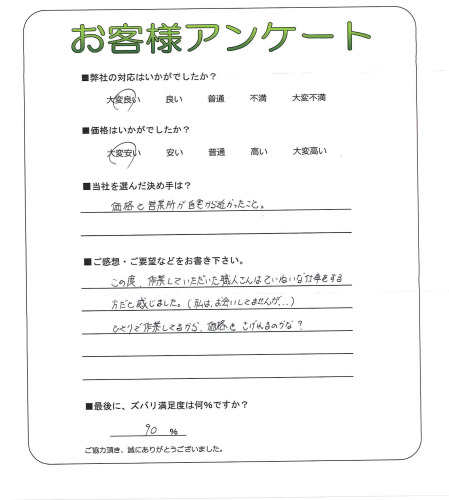 お客様アンケート
■弊社の対応はいかがでしたか？
大変良い 良い 普通 不満 大変不満
■価格はいかがでしたか？
大変安い 安い 普通 高い 大変高い
■当社を選んだ決め手は？
価格と営業所が自宅から近かったこと。
■ご感想・ご要望などをお書き下さい。
この度、作業していただいた職人さんはていねいな仕事をする
方だと感じました。（私は、お会いしてませんが、..）
ひとりで作業してるから、価格も さげれるのかな？
■最後に、ズバリ満足度は何%ですか？
90 %
ご協力頂き、誠にありがとうございました。